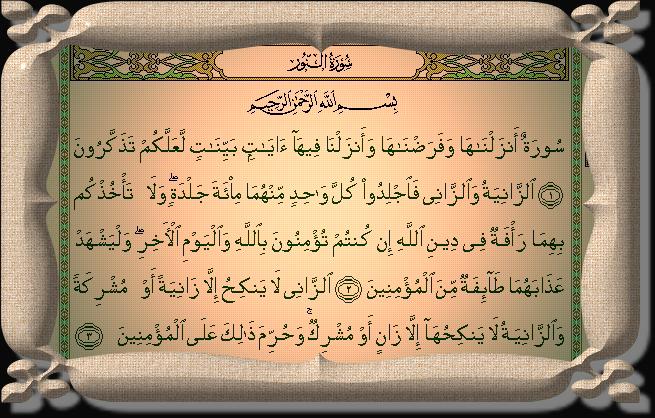 سُورَةُ النُّورِ
بِسْمِ اللَّهِ الرَّحْمَٰنِ الرَّحِيمِ
سُورَةٌ أَنزَلْنَٰهَا وَفَرَضْنَٰهَا وَأَنزَلْنَا فِيهَآ ءَايَٰتٍۭ بَيِّنَٰتٍ لَّعَلَّكُمْ تَذَكَّرُونَ
١ ٱلزَّانِيَةُ وَٱلزَّانِى فَٱجْلِدُوا۟ كُلَّ وَٰحِدٍ مِّنْهُمَا مِا۟ئَةَ جَلْدَةٍ ۖ وَلَا تَأْخُذْكُم
بِهِمَا رَأْفَةٌ فِى دِينِ ٱللَّهِ إِن كُنتُمْ تُؤْمِنُونَ بِٱللَّهِ وَٱلْيَوْمِ ٱلْـَٔاخِرِ ۖ وَلْيَشْهَدْ
عَذَابَهُمَا طَآئِفَةٌ مِّنَ ٱلْمُؤْمِنِينَ ٢ ٱلزَّانِى لَا يَنكِحُ إِلَّا زَانِيَةً أَوْ مُشْرِكَةً
وَٱلزَّانِيَةُ لَا يَنكِحُهَآ إِلَّا زَانٍ أَوْ مُشْرِكٌ ۚ وَحُرِّمَ ذَٰلِكَ عَلَى ٱلْمُؤْمِنِينَ ٣